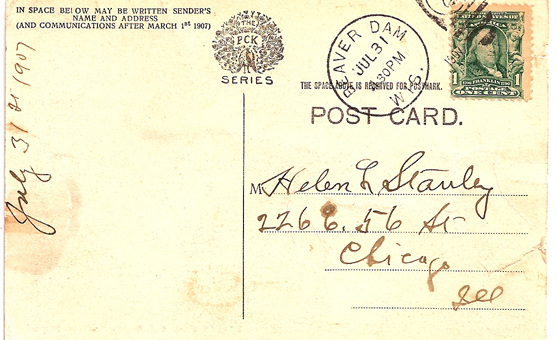 IN SPACE BELOW MAY BE WRITTEN SENDER'S
NAME AND ADDRESS
(AND COMMUNICATIONS AFTER MARCH 1st 1907)
THE
PCK
SERIES
BEAVER DAM
JUL 31
30PM
WIS.
1
FRANKLIN
1
POSTAGE
ONE CENT
THE SPACE ABOVE IS RESERVED FOR POSTMARK.
POST CARD.
July 31st 1907
M Helen L Stanley
226 E. 56 St
Chicago
Ill